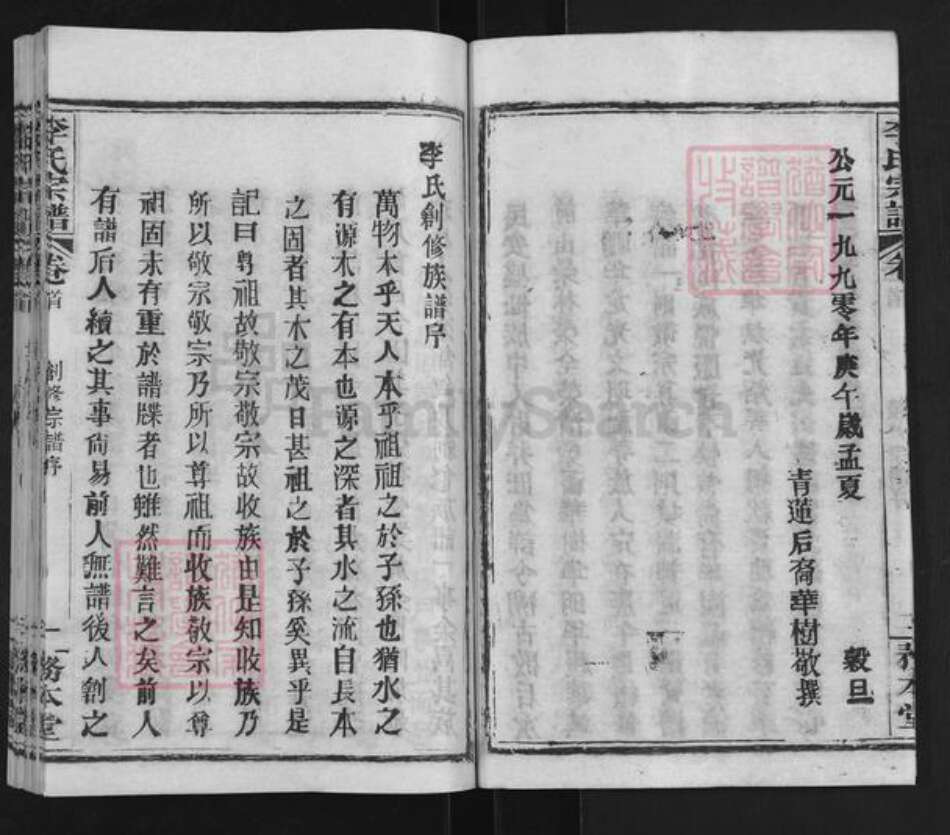 公元一九九零年庚午歲孟夏
穀旦
青蓮后裔華樹敬撰
李氏宗譜
卷首
創修宗譜序
一
務本堂
李氏創修族譜序
萬物本乎天人本乎祖祖之於子孫也猶水之
有源木之有本也源之深者其水之流自長本
之固者其木之茂日甚祖之於子孫奚異乎是
記曰尊祖故敬宗敬宗故收族由是知收族乃
所以敬宗敬宗乃所以尊祖而收族敬宗以尊
祖固未有重於譜牒者也雖然難言之矣前人
有譜后人續之其事尚易前人無譜後人創之
FamilySearch